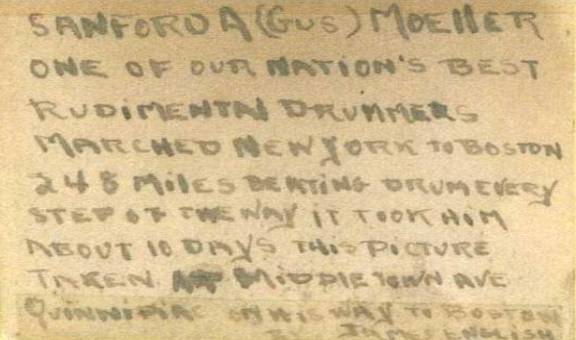 SANFORD A (GUS) MOELLER
ONE OF OUR NATION'S BEST
RUDIMENTAL DRUMMERS
MARCHED NEW YORK TO BOSTON
248 MILES BEATING DRUM EVERY
STEP OF THE WAY IT TOOK HIM
ABOUT 10 DAYS THIS PICTURE
TAKEN MIDDLETOWN AVE
QUINNIPIAC ON HIS WAY TO BOSTON
BY JAMES ENGLISH